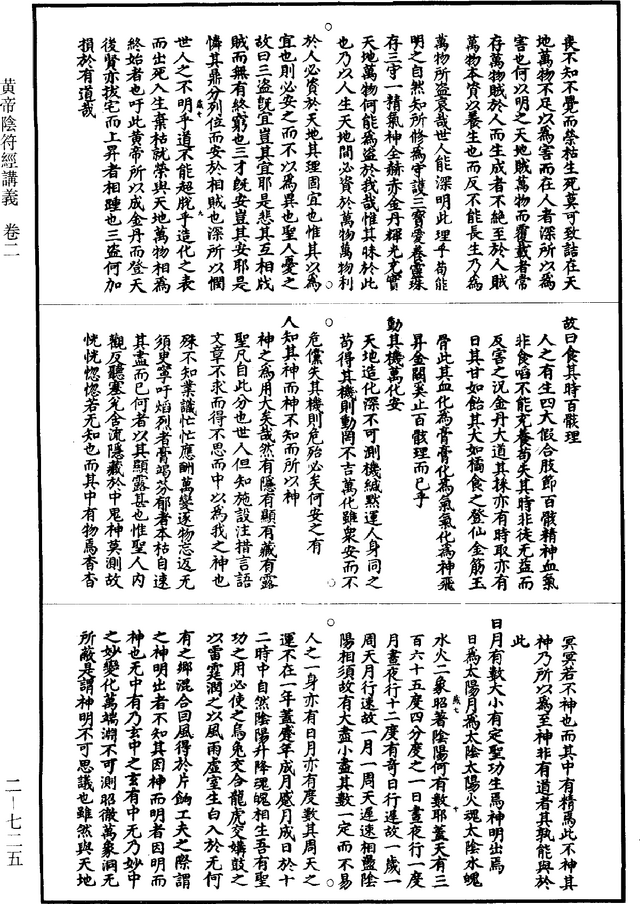 喪不知不覺而榮枯生死莫可致詰在天
地萬物不足以為害而在人者深所以為
害也何以明之天地賊萬物而覆載者常
存萬物賊於人而生成者不絕至於人賊
萬物本資以養生也而反不能長生乃為
萬物所盜哀哉世人能深明此理乎苟能
明之自然知所修為守護三寶愛養靈珠
存三守一精氣神全赫赤金丹輝光充實
天地萬物何能為盜於我哉惟其昧於此
也乃以人生天地間必資於萬物萬物利
於人必資於天地其理固宜也惟其以為
宜也則必安之而不以為異也聖人憂之
故曰三盜旣宜豈其宜耶是悲其互相戕
賊而無有終窮也三才旣安豈其安耶是
憐其鼎分列位而安於相賊也深所以憫
歲七 九
世人之不明乎道不能超脫乎造化之表
而出死入生棄枯就榮與天地萬物相為
終始者也吁此黃帝所以成金丹而登天
後賢亦拔宅而上昇者相踵也三盜何加
損於有道哉
故曰食其時百骸理
人之有生四大假合肢節百骸精神血氣
非食啗不能充養苟失其時非徒无益而
反害之況金丹大道其採亦有時取亦有
日其甘如飴其大如橘食之登仙金筋玉
骨此其血化為膏膏化為氣氣化為神飛
昇金闕奚止百骸理而已乎
動其機萬化安
天地造化深不可測機緘默運人身同之
苟得其機則動罔不吉萬化雖衆安而不
危儻失其機則危殆必矣何安之有
人知其神而神不知而所以神
神之為用大矣哉然有隱有顯有藏有露
聖凡自此分也世人但知施設注措言語
文章不求而得不思而中以為我之神也
殊不知業識忙忙應酬萬變逐物忘返无
須臾寧吁焰烈者膏竭芬郁者本枯自速
其盡而已何者以其顯露甚也惟聖人内
觀反聽塞兌含流隱藏於中鬼神莫測故
恍恍惚惚若无知也而其中有物焉杳杳
冥冥若不神也而其中有精焉此不神其
神乃所以為至神非有道者其孰能與於
此
日月有數大小有定聖功生焉神明出焉
日為太陽月為太陰太陽火魂太陰水魄
水火二象昭著陰陽何有數耶蓋天有三
歲七 十
百六十五度四分度之一日晝夜行一度
月晝夜行十二度有奇日行遲故一歲一
周天月行速故一月一周天遲速相盪陰
陽相須故有大盡小盡其數一定而不易
人之一身亦有日月亦有度數其周天之
運不在一年蓋蹙年成月蹙月成日於十
二時中自然陰陽升降魂魄相生吾有聖
功之用必使之烏兔交合龍虎交媾鼓之
以雷霆潤之以風雨虛室生白入於无何
有之鄉混合回風得於片餉工夫之際謂
之神明出者不知其因神而明者因明而
神也无中有乃玄中之玄有中无乃妙中
之妙變化萬端淵不可測昭徹萬象洞无
所蔽是謂神明不可思議也雖然與天地
黃帝陰符經講義 卷二
二-七二五